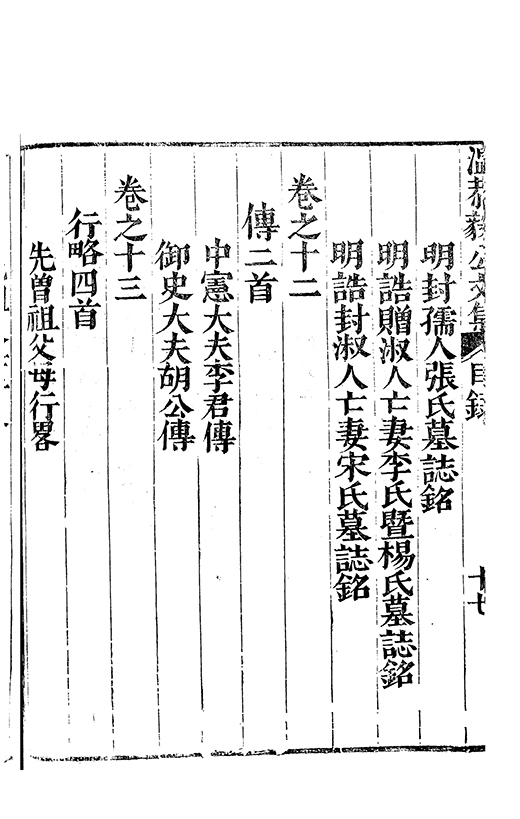 溫恭毅公文集 目錄 十七
明封孺人張氏墓誌銘
明誥贈淑人亡妻李氏暨楊氏墓誌銘
明誥封淑人亡妻宋氏墓誌銘
卷之十二
傳二首
中憲大夫李君傳
御史大夫胡公傳
卷之十三
行略四首
先曾祖父母行畧